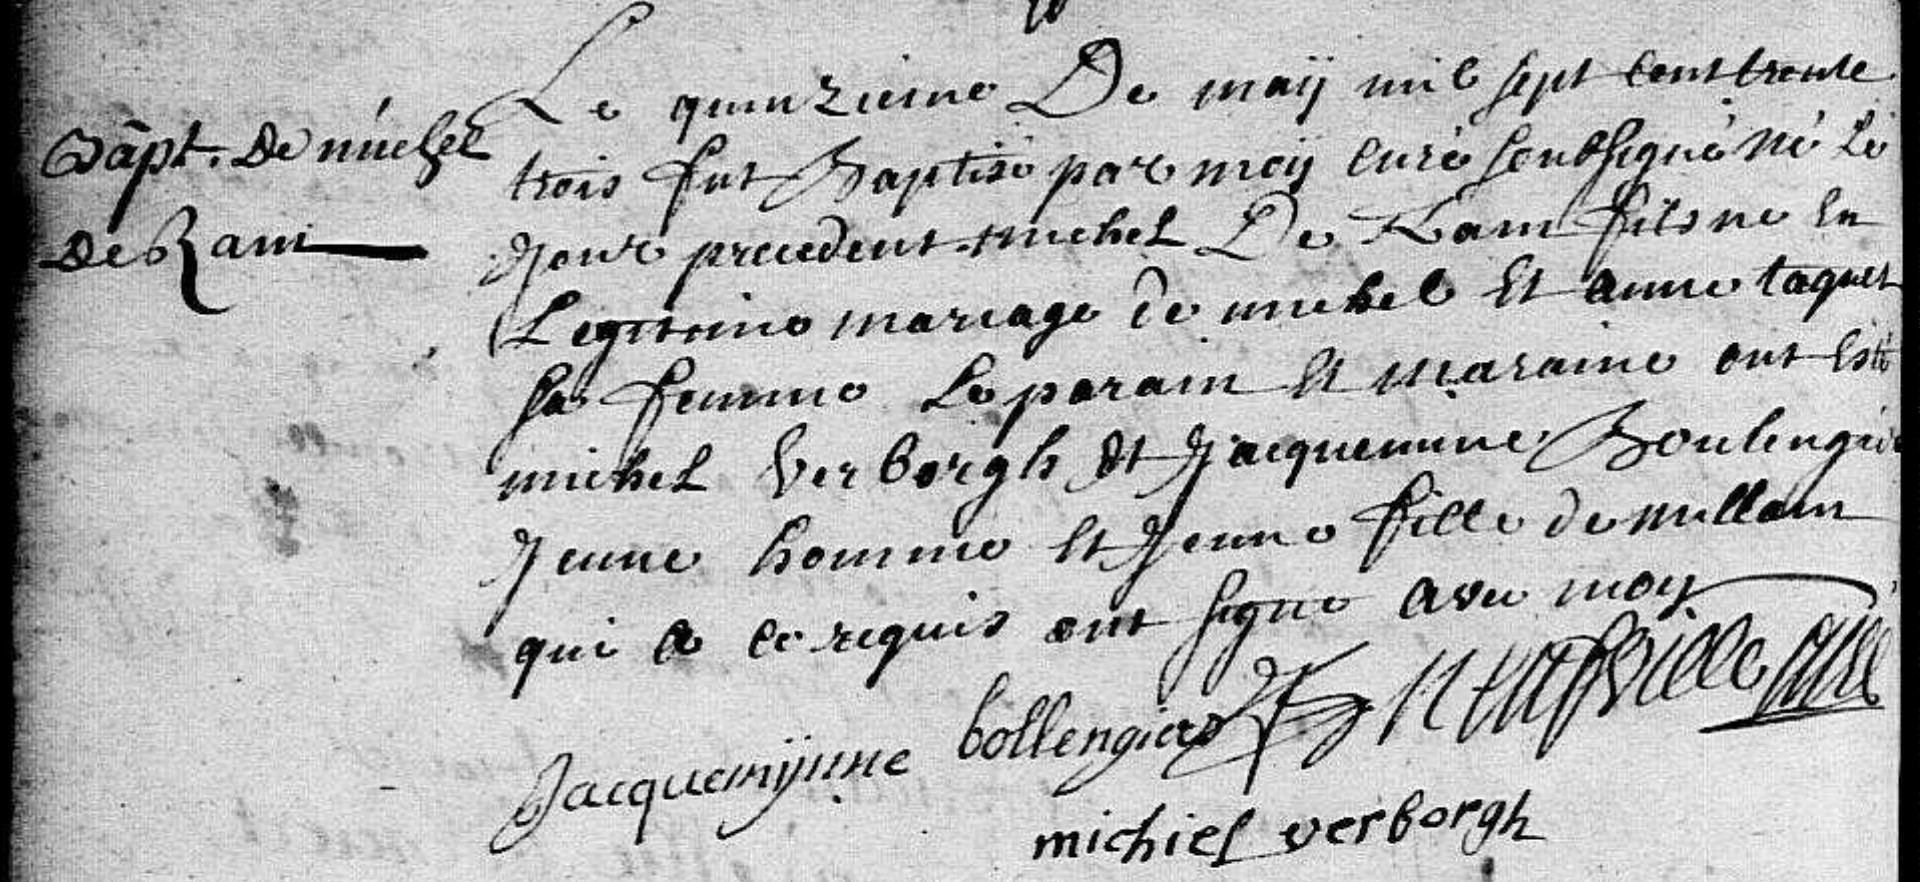 Bâpt. De michel
De Ram
Le quinzieme De maÿ mil sept cent trente
trois fut Baptisé par moÿ curé soubsigné né le
Jour precedent michel De Ram fils né en
Legitime mariage de michel Et anne taquet
sa femme Le parain Et maraine ont esté
michel verborgh Et Jacquemine Boulengier
Jeune homme Et Jeune fille de millam
qui a ce requis ont signé avec moy
Jacquemÿnne bollengier
michiel verborgh